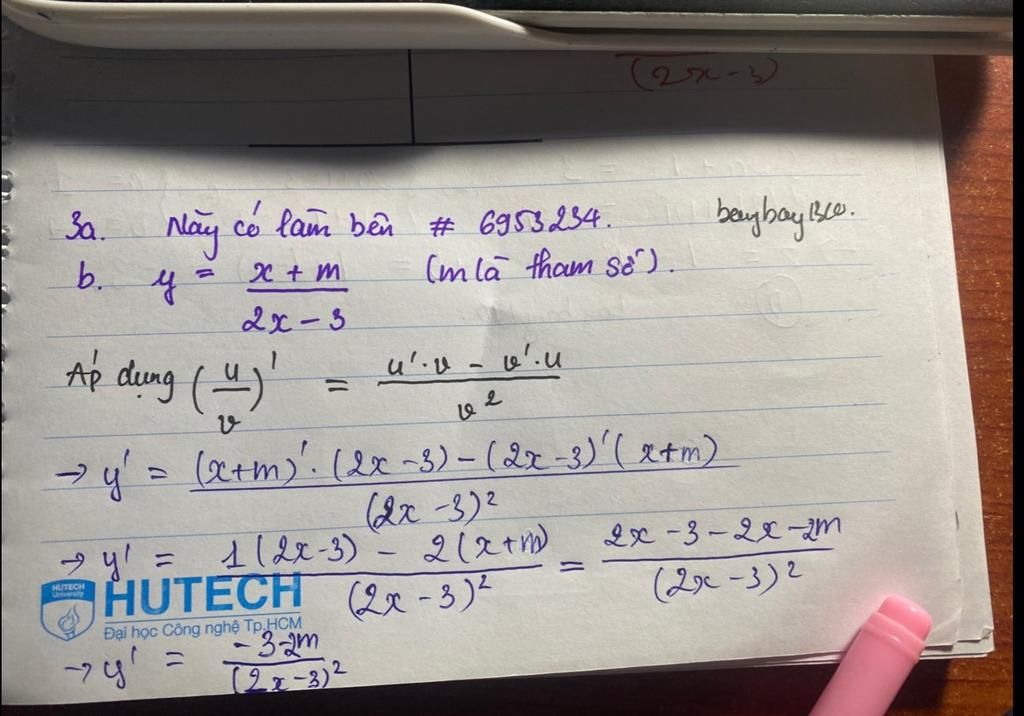 (2x-3)
3a. Này có làm bên # 6953234. baybayBLW.
b. y = x + m / 2x - 3 (m là tham số).
Áp dụng (u/v)' = u'.v - v'.u / v²
→ y' = (x+m)'.(2x-3)-(2x-3)'(x+m) / (2x-3)²
→ y' = 1(2x-3) - 2(x+m) / (2x-3)² = 2x-3-2x-2m / (2x-3)²
HUTECH University
HUTECH
Đại học Công nghệ Tp.HCM
→ y' = -3-2m / (2x-3)²